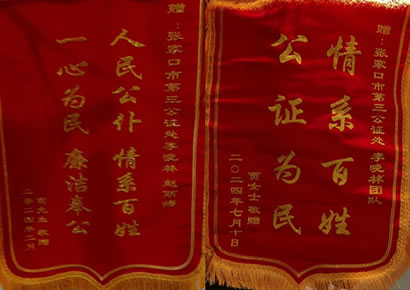 赠：张家口市第三公证处 李晓林
人民公仆 情系百姓
一心为民 廉洁奉公
敬赠
赠：张家口市第三公证处 李晓林团队
情系百姓
公证为民
贾女士敬赠
二〇二四年七月十日